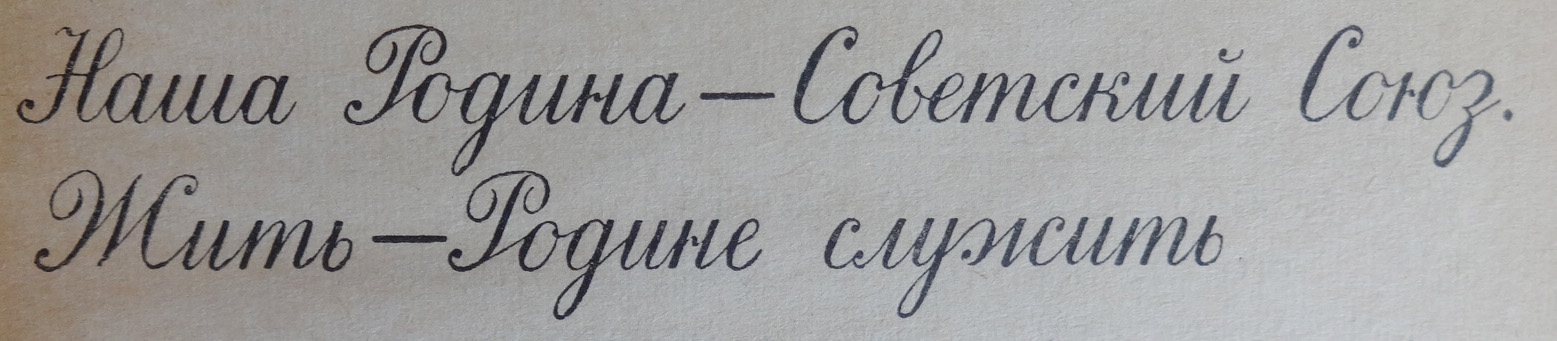 Наша Родина — Советский Союз.
Жить — Родине служить